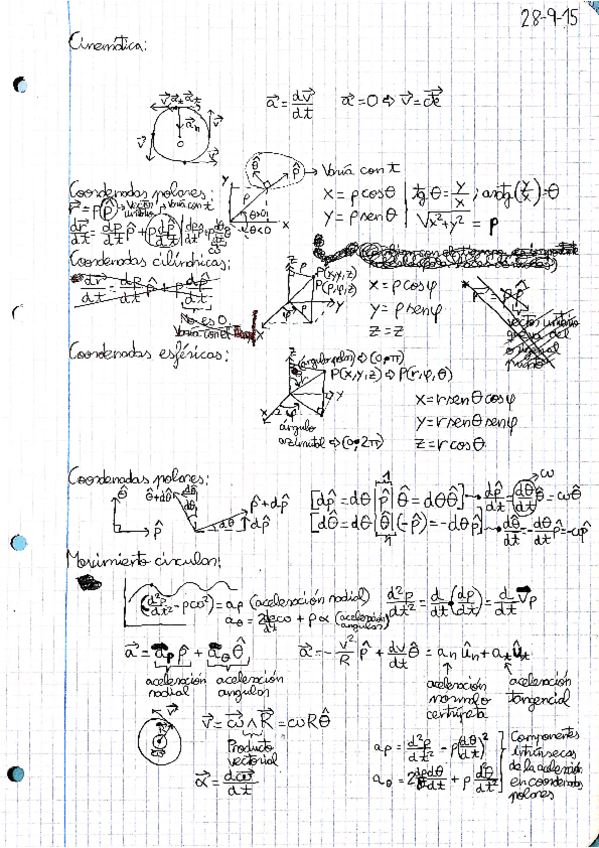 28-9-15
Cinemática:
a⃗ = dv⃗/dt   a⃗ = 0 ⇨ v⃗ = cte
v⃗ a⃗t a⃗n v⃗ 0
θ̂ ρ̂ → Varía con t
Coordenadas polares:
r⃗ = ρρ̂ → Vector unitario → Varía con t
x = ρ cos θ | tg θ = y/x ; arctg(y/x) = θ
y = ρ sen θ | √x²+y² = ρ
θ>0 θ<0
Coordenadas cilíndricas:
dr⃗/dt = dρ/dt ρ̂ + ρ dρ̂/dt
No es 0
Varía con el
P(x,y,z)
P(ρ,φ,z)
x = ρ cos φ
y = ρ sen φ
z = z
vector unitario
Coordenadas esféricas:
(ángulo polar) ⇨ (0,π)
P(x,y,z) ⇨ P(r,φ,θ)
x = r sen θ cos φ
y = r sen θ sen φ
z = r cos θ
ángulo
azimutal ⇨ (0,2π)
Coordenadas polares:
θ̂ ρ̂ θ̂+dθ̂ dθ̂ dθ ρ̂+dρ̂ dρ̂
[dρ̂ = dθ |ρ̂| θ̂ = dθ θ̂] → dρ̂/dt = dθ/dt θ̂ = ωθ̂
[dθ̂ = dθ |θ̂| (-ρ̂) = -dθ ρ̂] → dθ̂/dt = -dθ/dt ρ̂ = -ωρ̂
Movimiento circular:
(d²ρ/dt² - ρω²) = aρ (aceleración radial)   d²ρ/dt² = d/dt (dρ/dt) = d/dt vρ
aθ = 2 dρ/dt ω + ρα (aceleración angular)
a⃗ = aρ ρ̂ + aθ θ̂   a⃗ = -v²/R ρ̂ + dv/dt θ̂ = an ûn + at ût
aceleración radial   aceleración angular   aceleración normal o centrípeta   aceleración tangencial
v⃗ = ω⃗ ∧ R⃗ = ωRθ̂
Producto
vectorial
α⃗ = dω⃗/dt
aρ = d²ρ/dt² - ρ(dθ/dt)²
Componentes
intrínsecas
de la aceleración
en coordenadas
polares